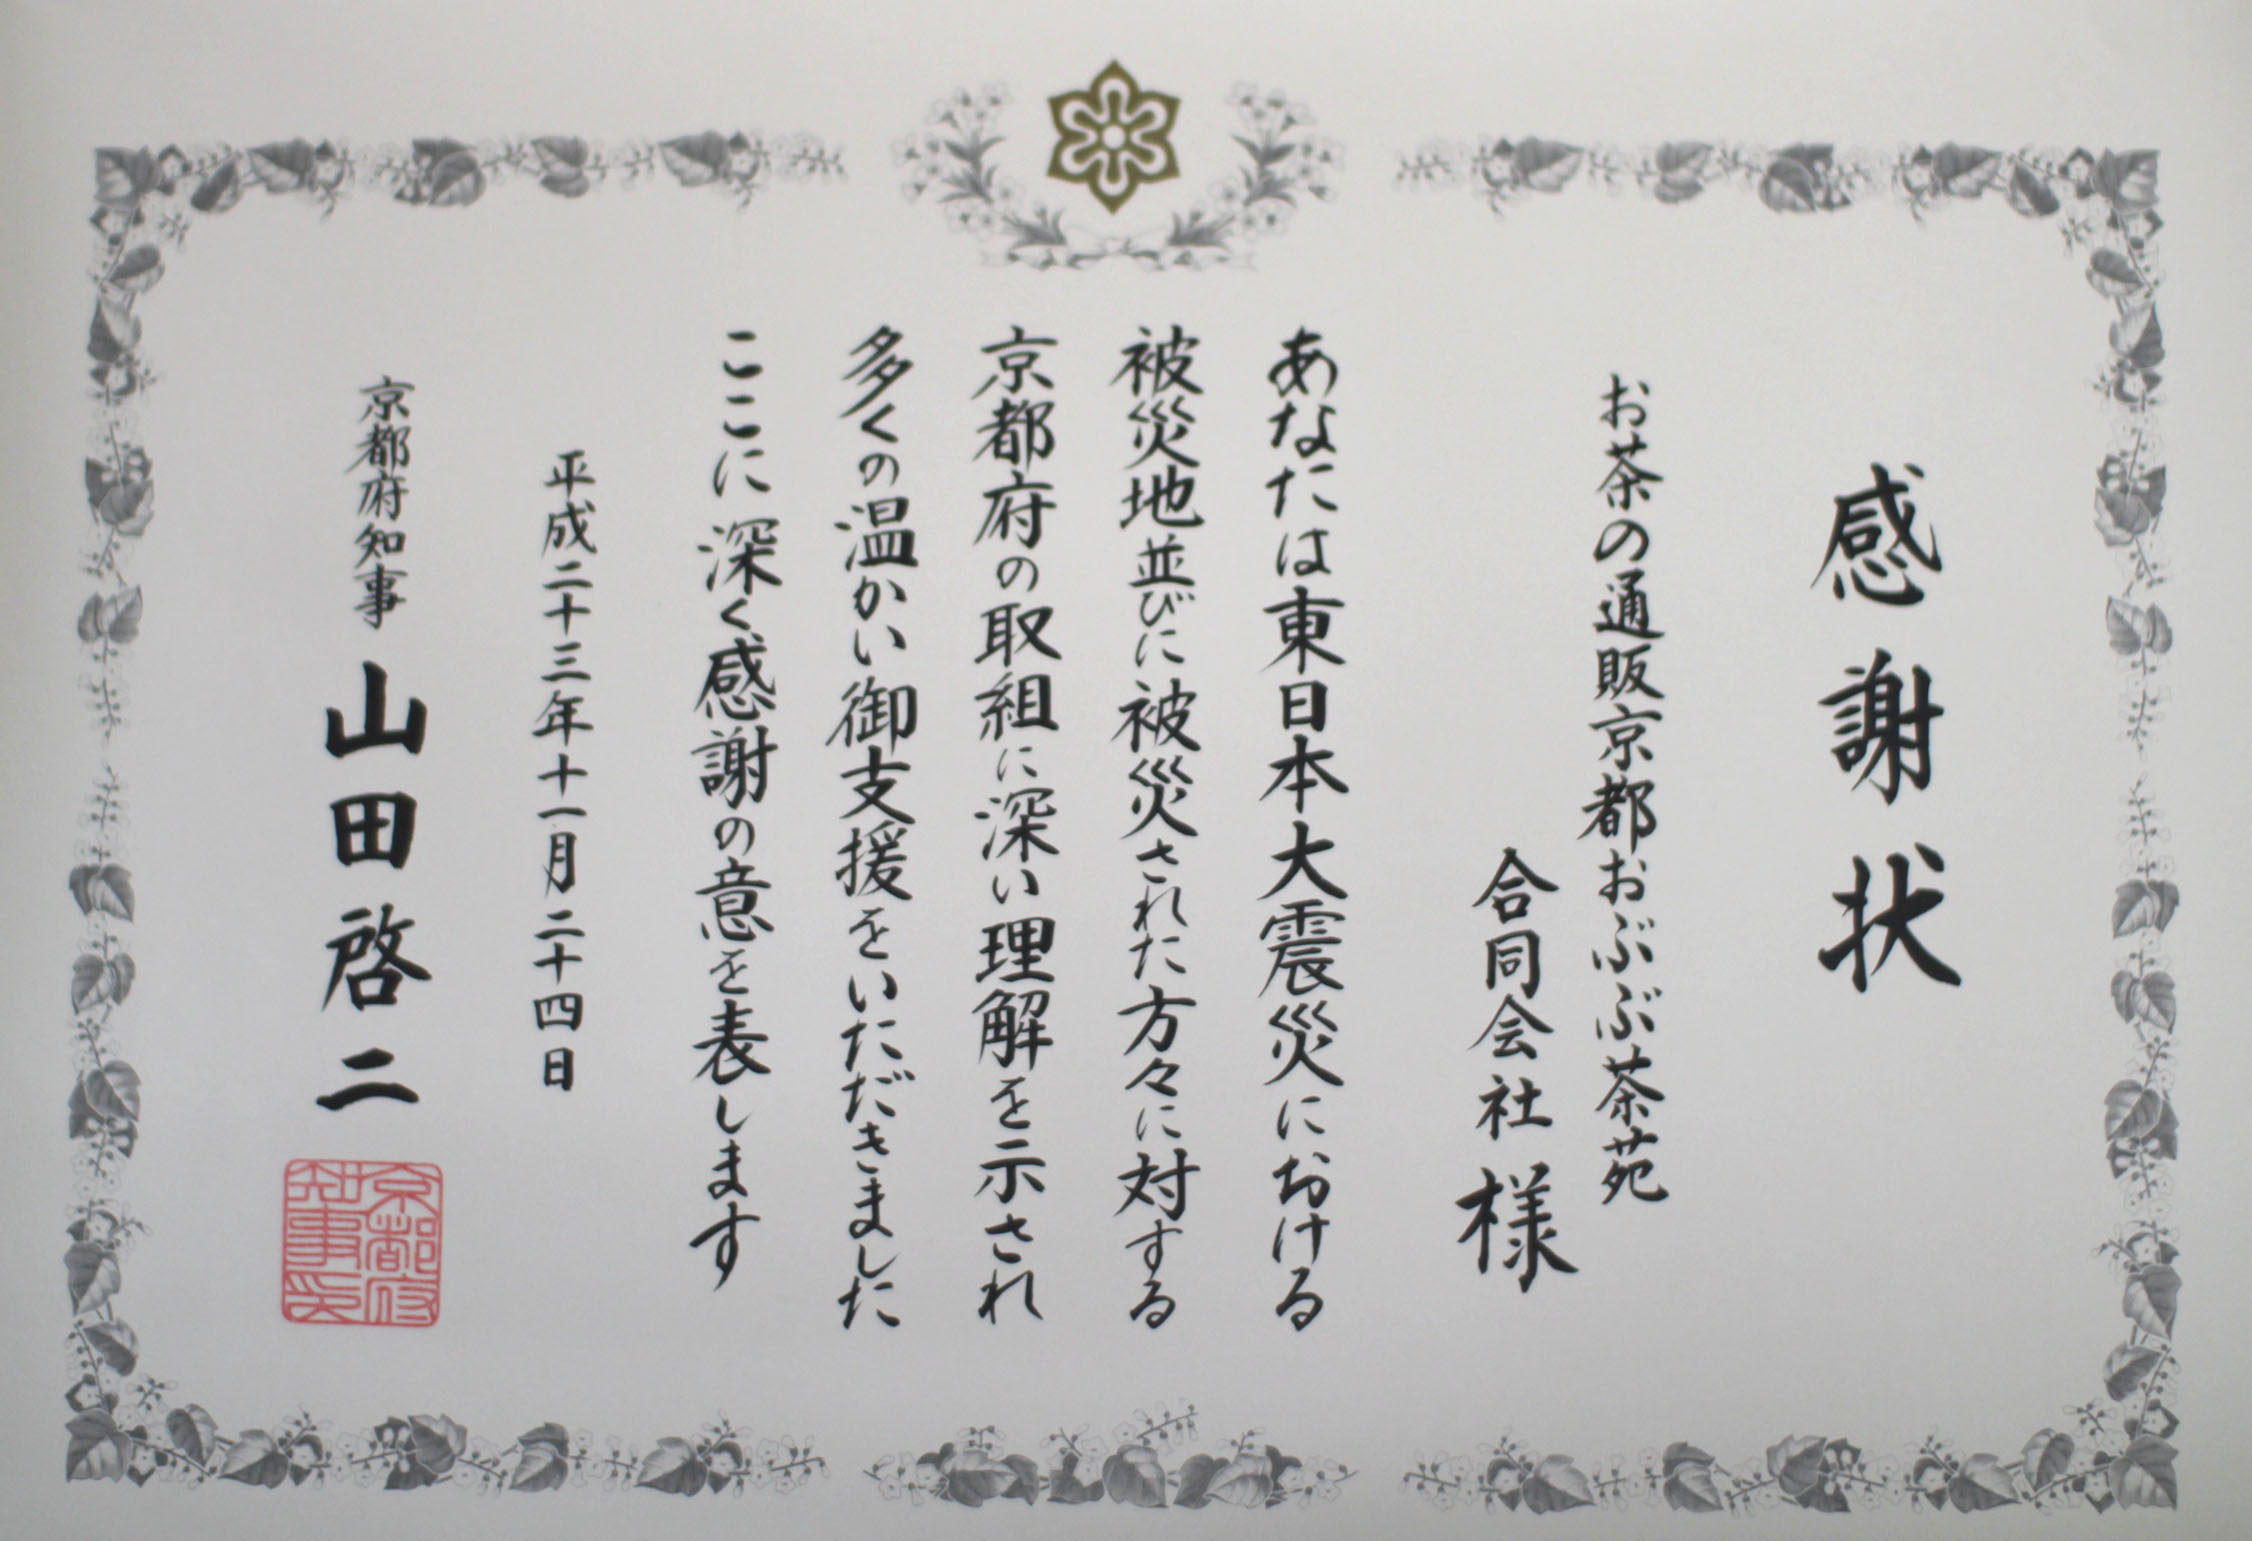 感謝状
お茶の通販京都おぶぶ茶苑
合同会社 様
あなたは東日本大震災における
被災地並びに被災された方々に対する
京都府の取組に深い理解を示され
多くの温かい御支援をいただきました
ここに深く感謝の意を表します
平成二十三年十一月二十四日
京都府知事 山田啓二
京都府
知事印